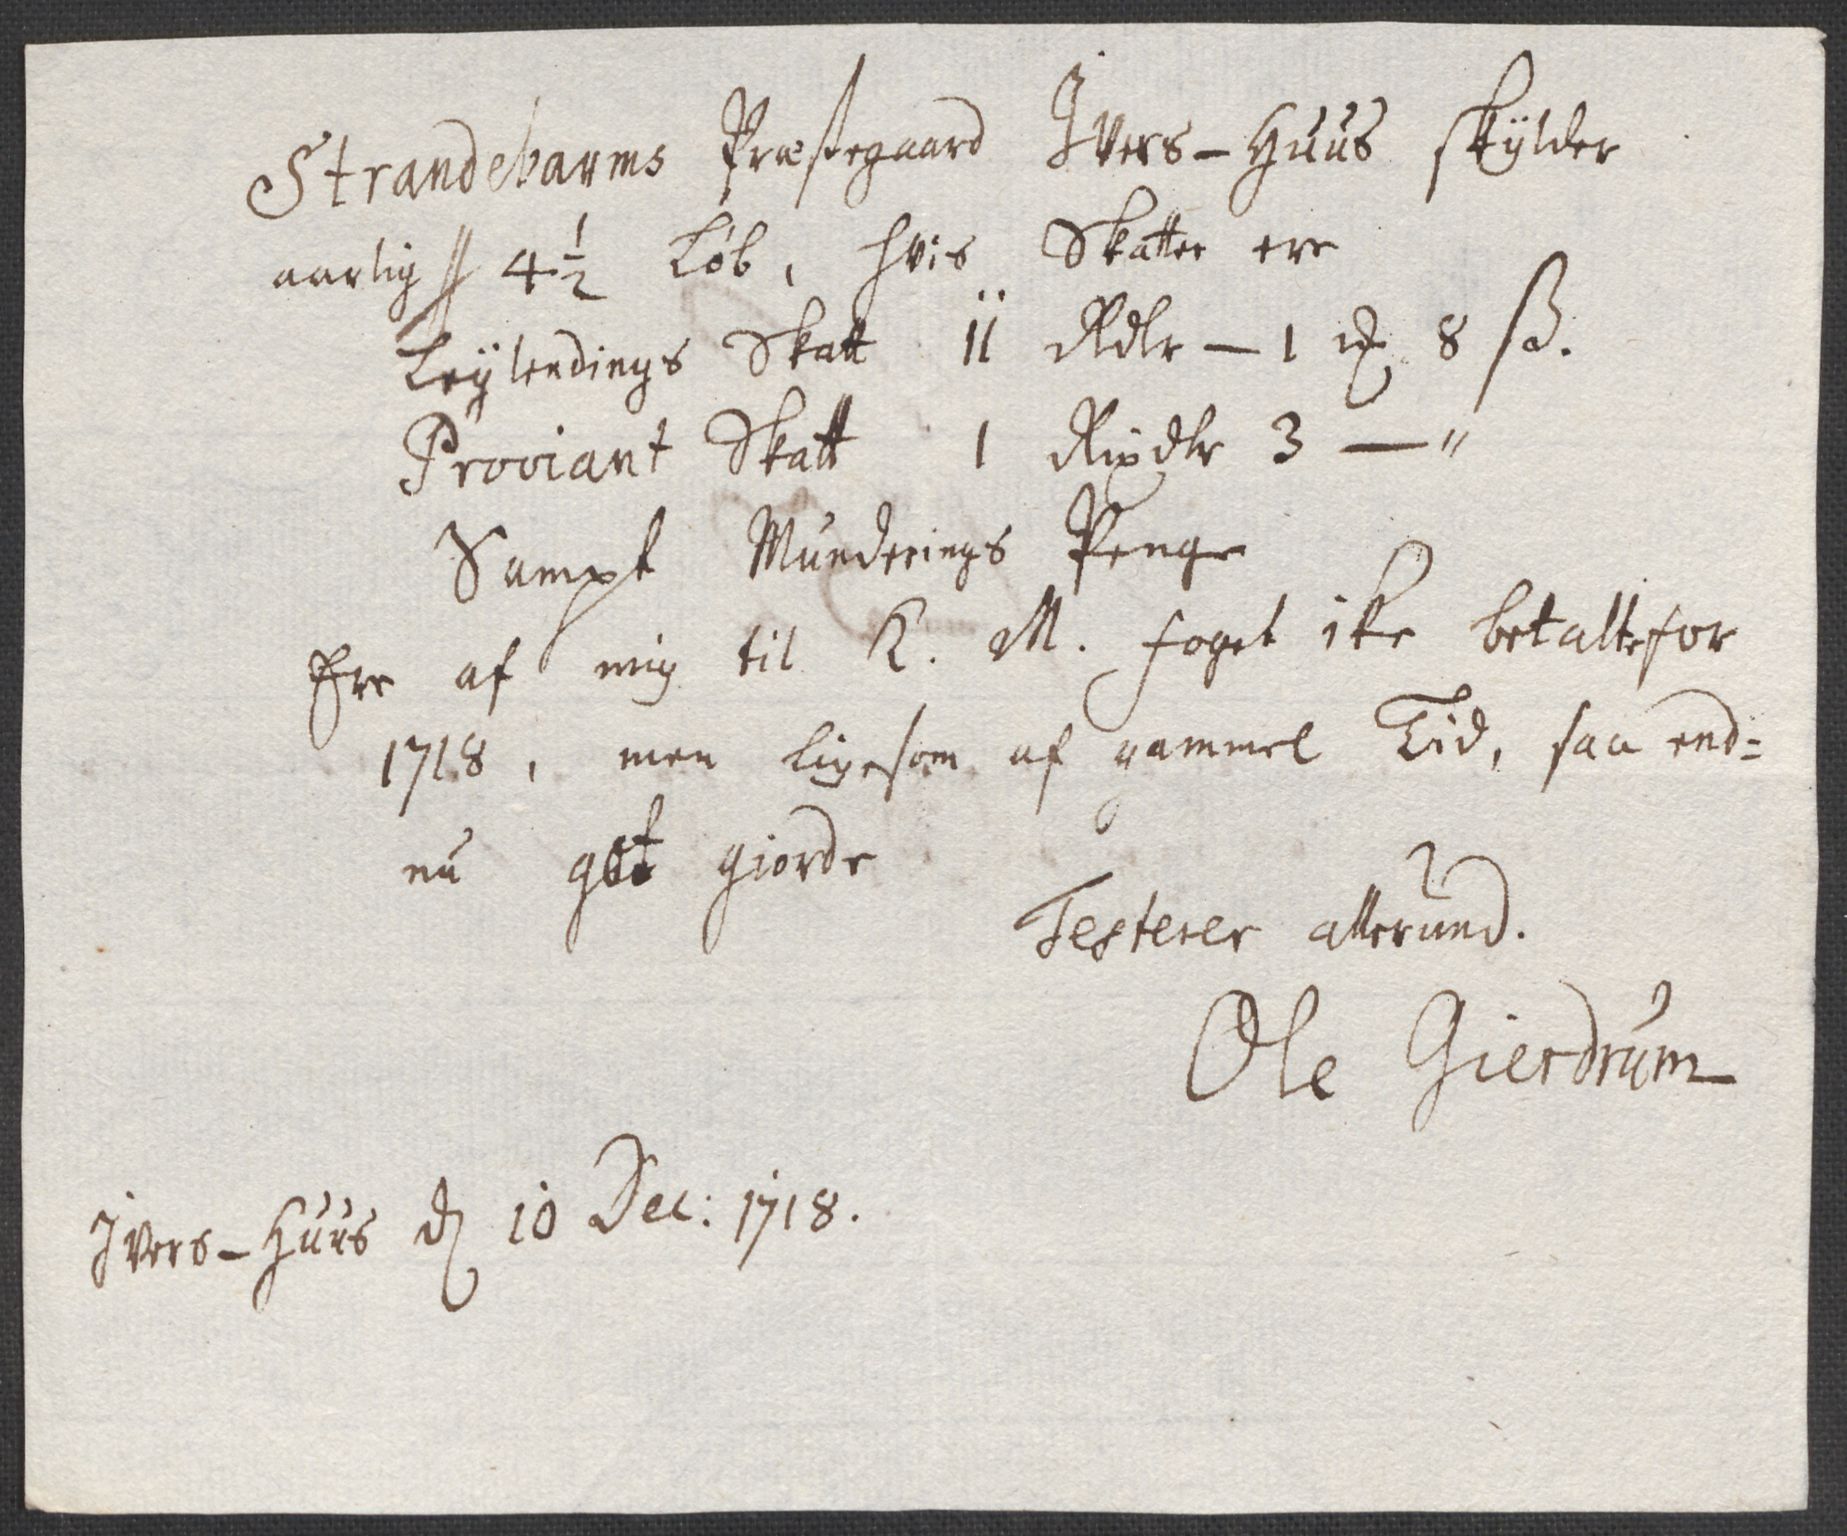 Strandebarms Præstegaard Ivers-Huus skylder
aarlig 4 1/2 Løb, hvis Skatter ere
Leylendings Skatt 11 Rdlr - 1 8 ß.
Proviant Skatt 1 Rixdlr 3 - "
Sampt Munderings Penge
Ere af mig til K. M. foget ike betalte for
1718, men ligesom af gammel Tid, saa end=
nu giorde
Testerer allerund.
Ole Gierdrum
Ivers-Huus d 10 Dec: 1718.